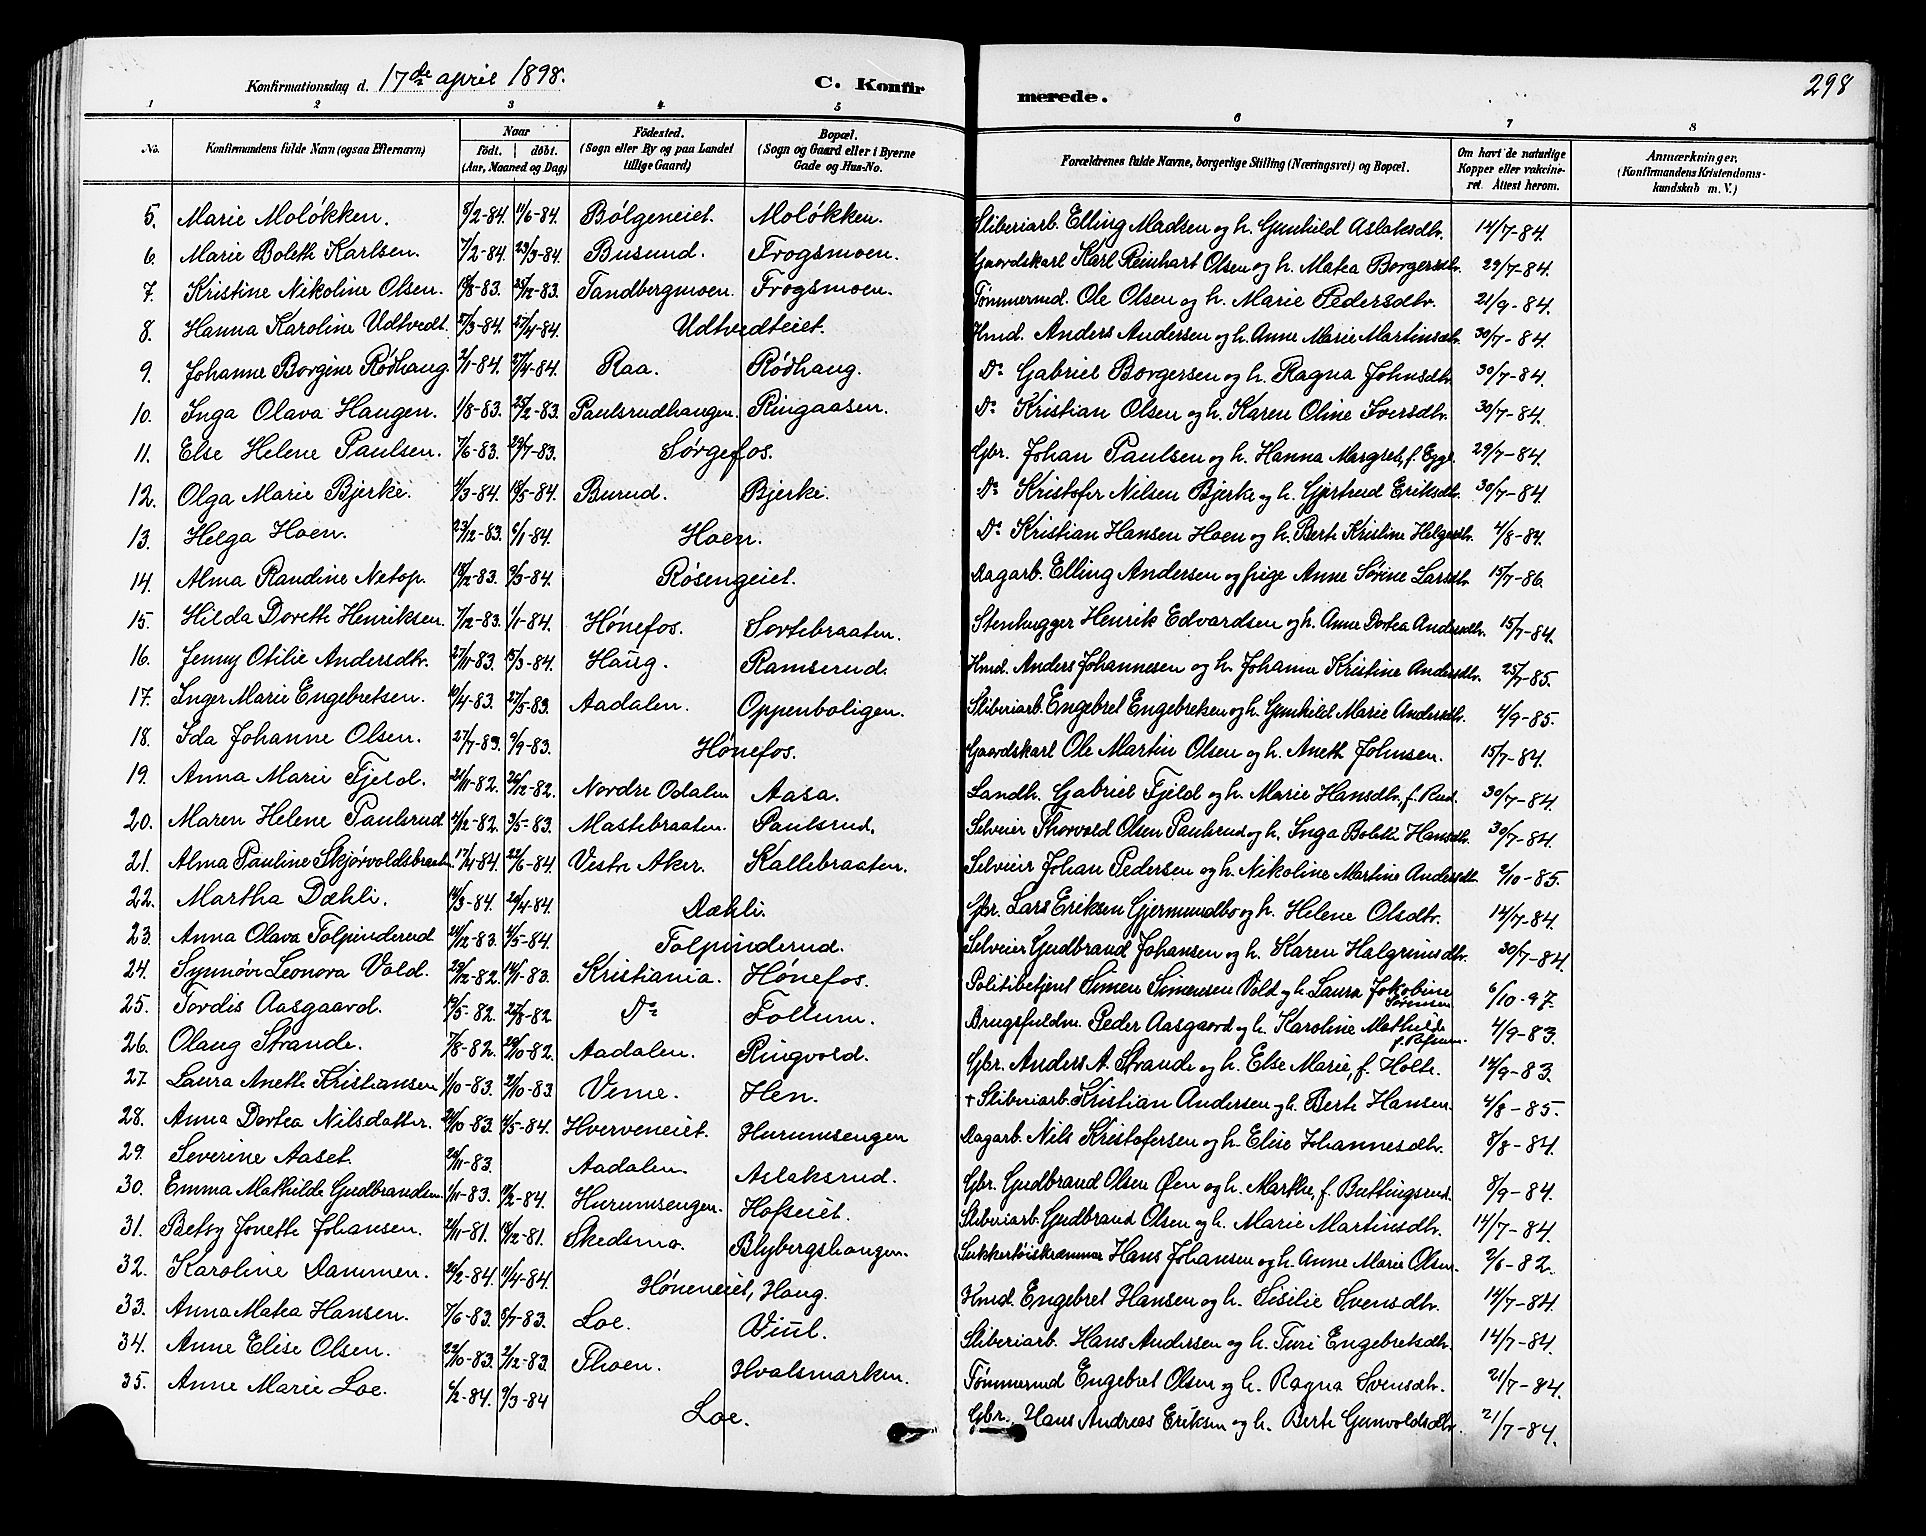 Konfirmationsdag d. 17de april 1898. C. Konfirmerede. 298
1 2 3 4 5 6 7 8
No. Konfirmandens fulde Navn (ogsaa Efternavn) Naar født. døbt. (Aar, Maaned og Dag) Fødested. (Sogn eller By og paa Landet tillige Gaard) Bopæl. (Sogn og Gaard eller i Byerne Gade og Hus-No. Forældrenes fulde Navne, borgerlige Stilling (Næringsvei) og Bopæl. Om havt de naturlige Kopper eller vakcineret. Attest herom. Anmærkninger. (Konfirmandens Kristendomskundskab m. V.)
5. Marie Moløkken. 8/2-84. 11/6-84. Bølgeneiet. Moløkken. Sliberiarb. Elling Madsen og h. Gunhild Aslaksdtr. 14/7-84.
6. Marie Boleth Karlsen. 7/2-84. 23/3-84. Busund. Frogsmoen. Gaardskarl Karl Reinhart Olsen og h. Matea Borgersdtr. 29/7-84.
7. Kristine Nikoline Olsen. 18/8-83. 25/12-83. Tandbergmoen. Frogsmoen. Tømmermd. Ole Olsen og h. Marie Pedersdtr. 21/9-84.
8. Hanna Karoline Udtvedt. 27/3-84. 27/4-84. Udtvedteiet. Hmd. Anders Andersen og h. Anne Marie Martinsdtr. 30/7-84.
9. Johanne Borgine Rødhaug. 2/1-84. 27/4-84. Raa. Rødhaug. Do Gabriel Borgersen og h. Ragna Johnsdtr. 30/7-84.
10. Inga Olava Haugen. 1/8-83. 25/12-83. Paulsrudhaugen. Ringaasen. Do Kristian Olsen og h. Karen Oline Iversdtr. 30/7-84.
11. Else Helene Paulsen. 7/6-83. 29/7-83. Sørgefos. Gbr. Johan Paulsen og h. Hanna Margret, f. Egge. 29/7-84.
12. Olga Marie Bjerke. 4/3-84. 18/5-84. Burud. Bjerke. Do Kristofer Nilsen Bjerke og h. Gjertrud Eriksdtr. 30/7-84.
13. Helga Hoen. 23/12-83. 6/1-84. Hoen. Do Kristian Hansen Hoen og h. Berte Kristine Helgesdtr. 4/8-84.
14. Alma Randine Netop. 18/12-83. 9/3-84. Røsengeiet. Dagarb. Elling Andersen og pige Anne Sørine Larsdtr. 15/7-86.
15. Hilda Dorette Henriksen. 7/12-83. 1/1-84. Hønefos. Sortebraaten. Stenhugger Henrik Edvardsen og h. Anne Dortea Andersdtr. 15/7-84.
16. Jenny Otilie Andersdtr. 27/11-83. 15/3-84. Haug. Ramserud. Hmd. Anders Johannesen og h. Johanne Kristine Andersdtr. 25/7-85.
17. Inger Marie Engebretsen. 10/4-83. 27/5-83. Aadalen. Oppenboligen. Sliberiarb. Engebret Engebretsen og h. Gunhild Marie Andersdtr. 4/9-85.
18. Ida Johanne Olsen. 27/7-83. 9/9-83. Hønefos. Gaardskarl Ole Martin Olsen og h. Aneth Johnsen. 15/7-84.
19. Anna Marie Fjeld. 21/11-82. 26/12-82. Nordre Odalen Aasa. Landh. Gabriel Fjeld og h. Marie Hansdtr. f. Rud. 30/7-84.
20. Maren Helene Paulsrud. 4/12-82. 3/5-83. Mastebraaten. Paulsrud. Selveier Thorvold Olsen Paulsrud og h. Inga Bolette Hansdtr. 30/7-84.
21. Alma Pauline Skjørvoldsbraaten 17/4-84. 22/6-84. Vestre Aker. Kallebraaten. Selveier Johan Pedersen og h. Nikoline Martine Andersdtr. 2/10-85.
22. Martha Dæhli. 14/3-84. 20/4-84. Dæhli. Gbr. Lars Eriksen Gjermundbo og h. Helene Olsdtr. 14/7-84.
23. Anna Olava Tolpinderud. 24/12-83. 4/5-84. Tolpinderud. Selveier Gudbrand Johansen og h. Karen Halgrimsdtr. 30/7-84.
24. Synnøve Leonora Vold. 29/12-82. 14/1-83. Kristiania. Hønefos. Politibetjent Simen Simensen Vold og h. Laura Jokobine Sørensen 6/10-97.
25. Tordis Aasgaard. 19/5-82. 27/8-82 Do Follum. Brugsfuldm. Peder Aasgaard og h. Karoline Mathilde 4/9-83.
26. Olaug Strande. 7/8-82. 29/10-82. Aadalen. Ringvold. Gbr. Anders A. Strande og h. Else Marie, f. Holte. 12/9-83.
27. Laura Anette Kristiansen 1/10-83. 21/10-83. Veme. Hen. + Sliberiarb. Kristian Andersen og h. Berte Hansen. 4/8-85.
28. Anna Dortea Nilsdatter. 24/10-83. 4/5-84. Hverveneiet. Hurumsengen Dagarb. Nils Kristofersen og h. Elise Johannesdtr. 8/8-84.
29. Severine Aaset. 29/11-83. Aadalen. Aslaksrud. Gbr. Gudbrand Olsen Øen og h. Marthe, f. Buttingsrud. 8/9-84.
30. Emma Mathilde Gudbrandsen. 1/11-83. 19/2-84. Hurumsengen. Hofseiet. Sliberiarb. Gudbrand Olsen og h. Marie Martinsdtr. 14/7-84.
31. Betsy Jonette Johansen. 21/11-81. 18/12-81. Skedsmo. Blybergshaugen. Sukkertøiskræmmer Hans Johansen og h. Anne Marie Olsen. 2/6-82.
32. Karoline Dammen. 26/2-84. 11/4-84. Høneneiet, Haug. Hmd. Engebret Hansen og h. Sisilie Svensdtr. 14/7-84.
33. Anna Matea Hansen. 7/6-83. 8/7-83. Loe. Viul. Sliberiarb. Hans Andersen og h. Turi Engebretsdtr. 14/7-84.
34. Anne Elise Olsen. 22/10-83. 2/12-83. Thoen. Hvalsmarken. Tømmermd Engebret Olsen og h. Ragna Svensdtr. 21/7-84.
35. Anne Marie Loe. 6/2-84. 9/3-84 Loe. Gbr. Hans Andreas Eriksen og h. Berte Gunvoldsdtr. 21/7-84.